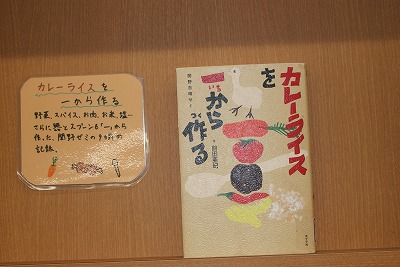 カレーライスを
一から作る
野菜、スパイス、お肉、お米、塩…
さらに器とスプーンも「一」から
作った、関野ゼミの9ヵ月の
記録。
カレーライス
を
一から
いち
作る
つく
関野吉晴ゼミ
前田亜紀